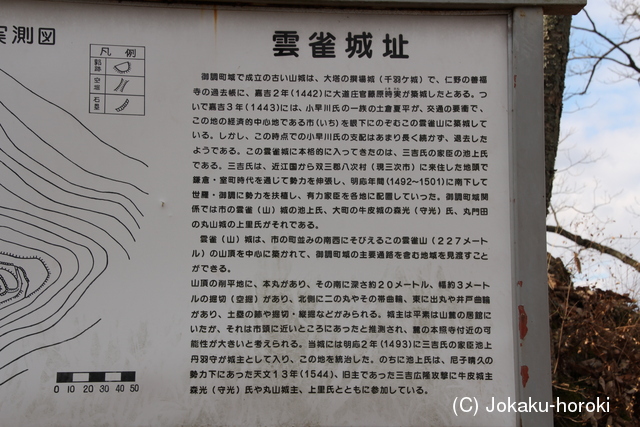 実測図
凡例
郭跡
空堀
石塁
0 10 20 30 40 50
雲雀城址
御調町域で成立の古い山城は、大塔の撰場城(千羽ケ城)で、仁野の善福
寺の過去帳に、嘉吉2年(1442)に大道庄官藤原時実が築城したとある。つ
いで嘉吉3年(1443)には、小早川氏の一族の土倉夏平が、交通の要衝で、
この地の経済的中心地である市(いち)を眼下にのぞむこの雲雀山に築城し
ている。しかし、この時点での小早川氏の支配はあまり長く続かず、退去した
ようである。この雲雀城に本格的に入ってきたのは、三吉氏の家臣の池上氏
である。三吉氏は、近江国から双三郡八次村(現三次市)に来住した地頭で
鎌倉・室町時代を通じて勢力を伸張し、明応年間(1492~1501)に南下して
世羅・御調に勢力を扶植し、有力家臣を各地に配置していった。御調町域関
係では市の雲雀(山)城の池上氏、大町の牛皮城の森光(守光)氏、丸門田
の丸山城の上里氏がそれである。
雲雀(山)城は、市の町並みの南西にそびえるこの雲雀山(227メート
ル)の山頂を中心に築かれて、御調町域の主要通路を含む地域を見渡すこと
ができる。
山頂の削平地に、本丸があり、その南に深さ約20メートル、幅約3メート
ルの掘切(空掘)があり、北側に二の丸やその帯曲輪、東に出丸や井戸曲輪
があり、土塁の跡や掘切・竪掘などがみられる。城主は平素は山麓の居館に
いたが、それは市頭に近いところにあったと推測され、麓の本照寺付近の可
能性が大きいと考えられる。当城には明応2年(1493)に三吉氏の家臣池上
丹羽守が城主として入り、この地を統治した。のちに池上氏は、尼子晴久の
勢力下にあった天文13年(1544)、旧主であった三吉広隆攻撃に牛皮城主
森光(守光)氏や丸山城主、上里氏とともに参加している。
(C) Jokaku-horoki